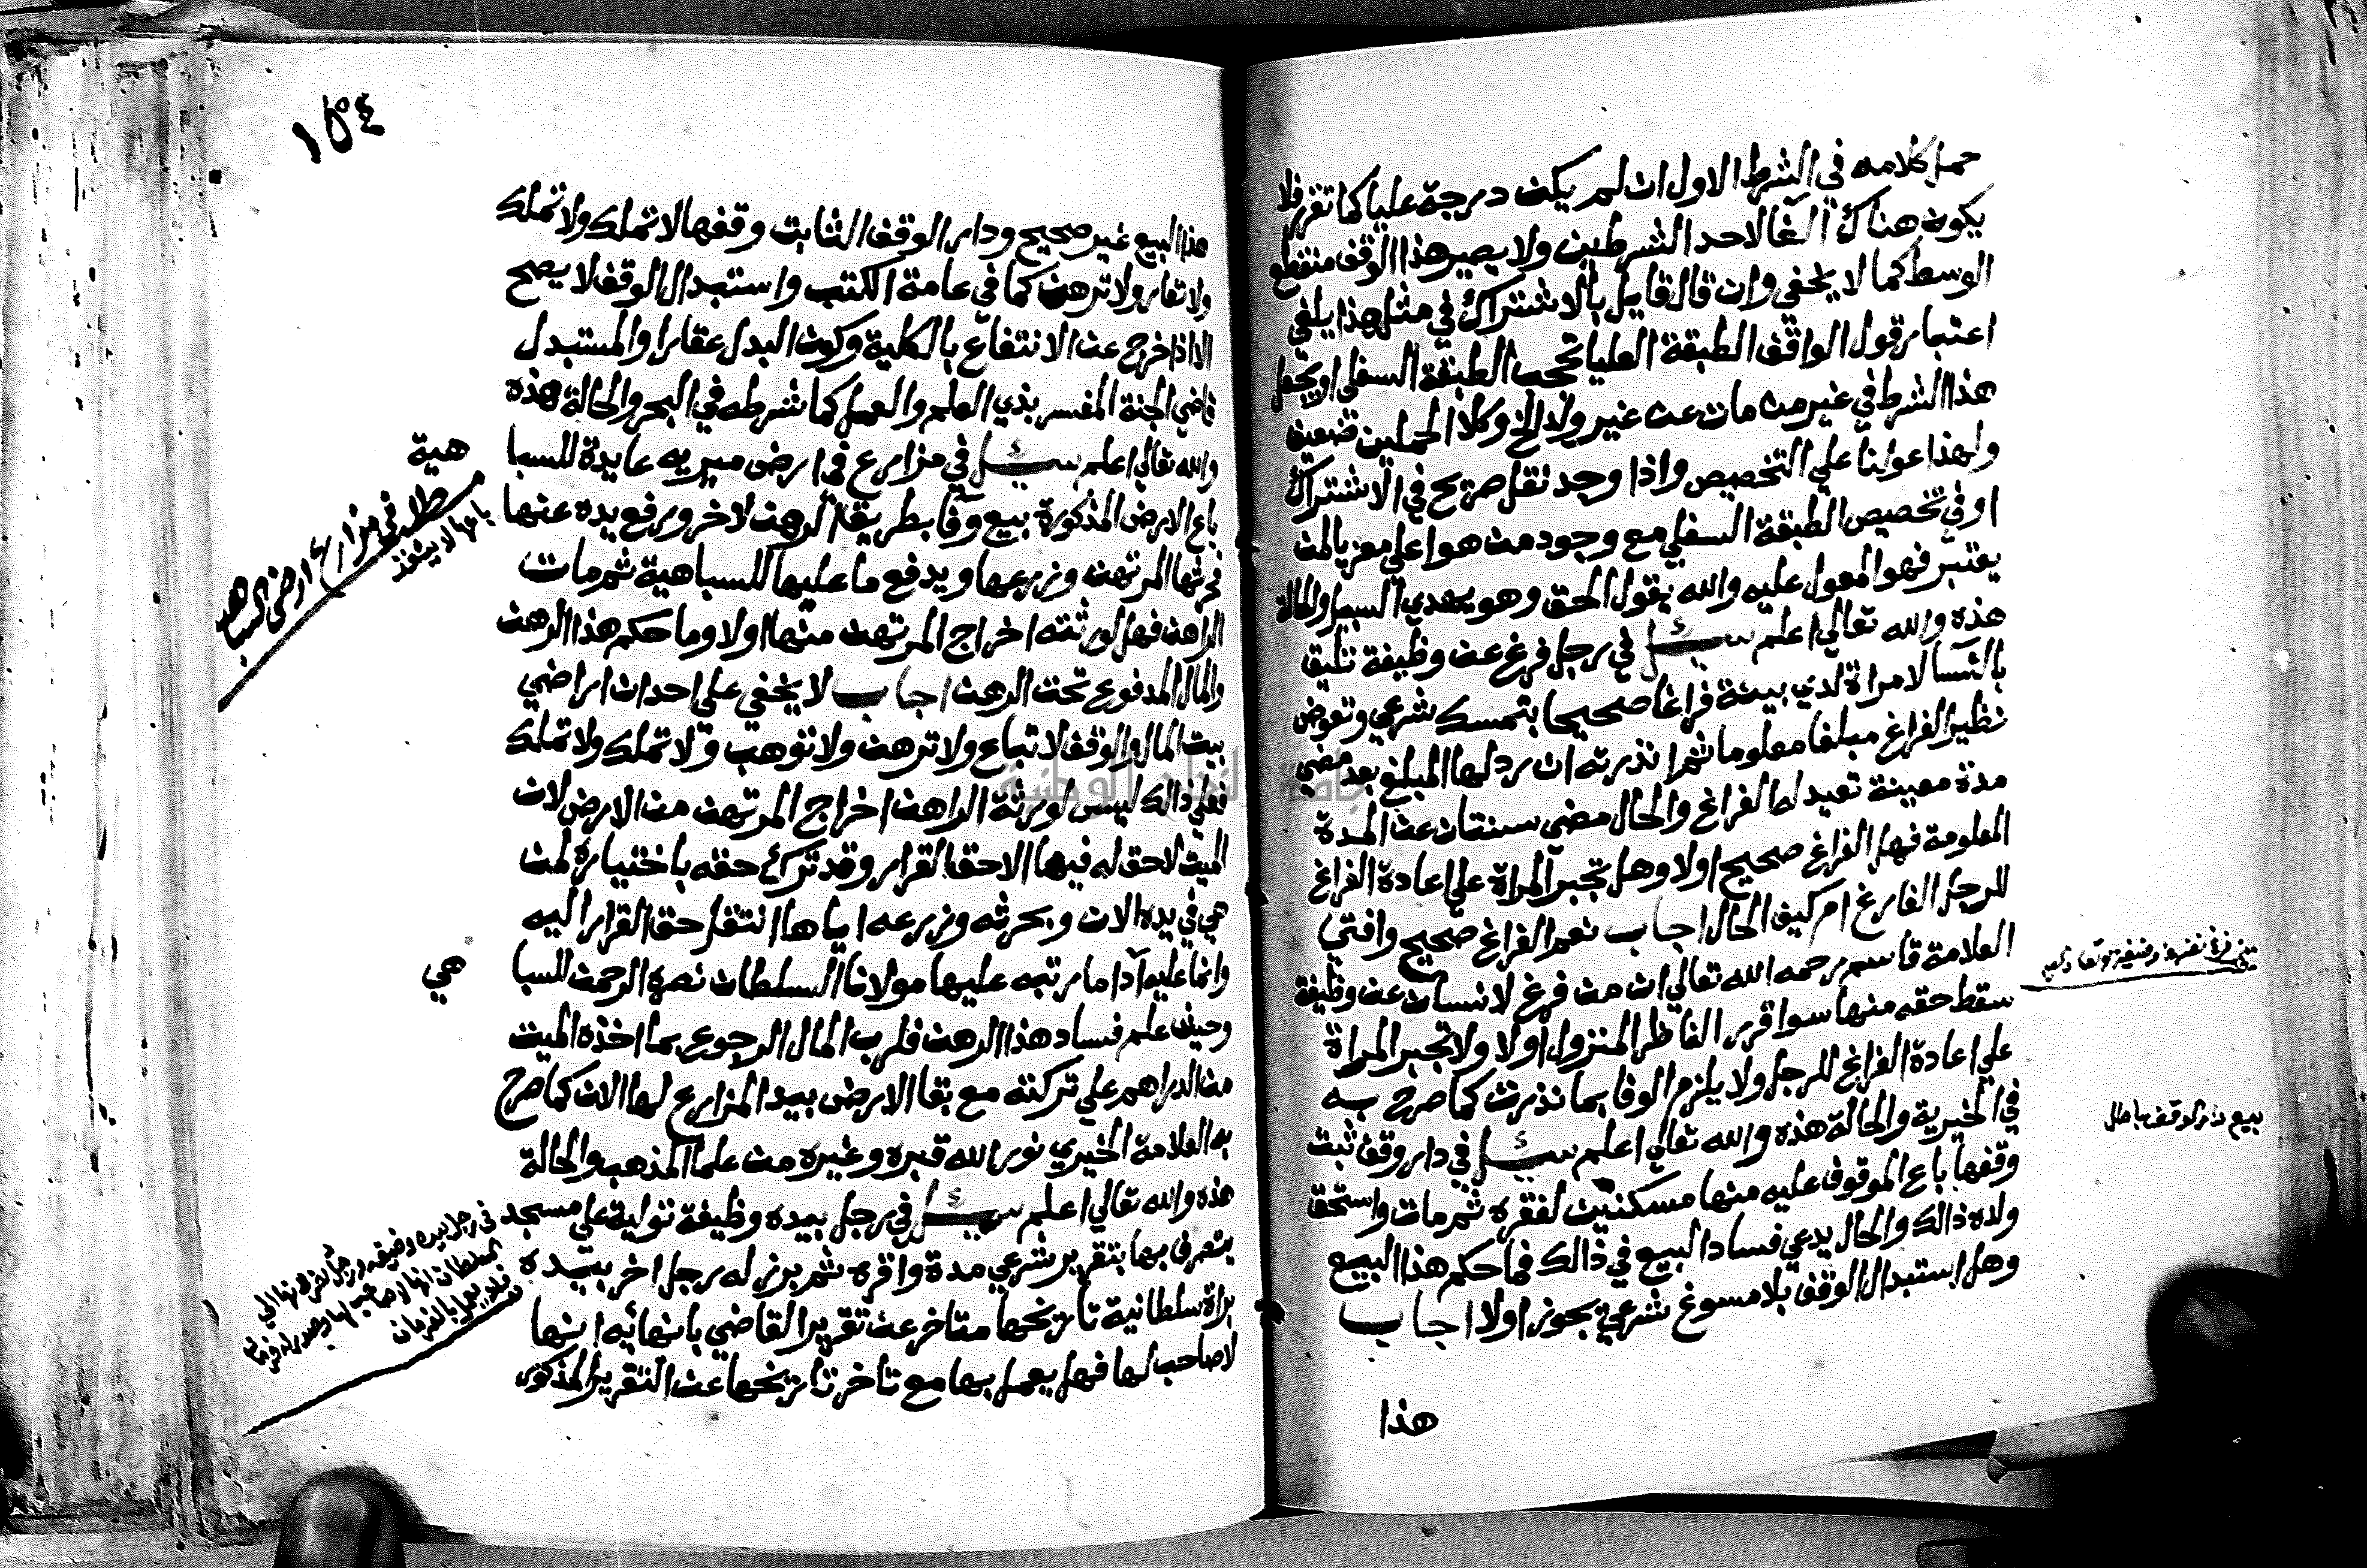 حمل كلامه في الشرط الاول ان لم يكن درجة عليا كما تقرر فلا
يكون هناك آلغا لاحد الشرطين ولا يصير هذا الوقف منقطع
الوسط كما لا يخفي وان قال قايل بالاشتراك في مثل هذا يلغي
اعتبار قول الواقف الطبقة العليا تحجب الطبقة السفلي او يجعل
هذا الشرط في غير من مات عن غير ولد الخ وكلا الحملين ضعيف
ولهذا عولنا علي التخصيص واذا وجد نقل صريح في الاشتراك
او في تخصيص الطبقة السفلي مع وجود من هو اعلي معزيا لمن
يعتبر فهو المعول عليه والله يقول الحق وهو يهدي السبيل والحالة
هذه والله تعالي اعلم سئل في رجل فرغ عن وظيفة تليق
بالنسا لامراة لدي بينة فراغا صحيحا بتمسك شرعي وتعوض
نظير الفراغ مبلغا معلوما ثم انذرته ان رد لها المبلغ بعد مضي
مدة معينة تعيد له الفراغ والحال مضي سنتان عن المدة
المعلومة فهل الفراغ صحيح اولا وهل تجبر المراة علي اعادة الفراغ
للرجل الفارغ ام كيف الحال اجاب نعم الفراغ صحيح وافتي
العلامة قاسم رحمه الله تعالي ان من فرغ لانسان عن وظيفة
سقط حقه منها سوا قرر الناظر المنزول اولا ولا تجبر المراة
علي اعادة الفراغ للرجل ولا يلزم الوفا بما نذرت كما صرح به
في الخيرية والحالة هذه والله تعالي اعلم سئل في دار وقف ثبت
وقفها باع الموقوف عليه منها مسكنين لفقره ثم مات واستحق
ولاده ذالك والحال يدعي فساد البيع في ذالك فما حكم هذا البيع
وهل استبدال الوقف بلا مسوغ شرعي يجوز اولا اجاب
هذا
بيع دار الوقف باطل
١٥٤
هذا البيع غير صحيح ودار الوقف الثابت وقفها لا تملك ولا تملك
ولا تعار ولا ترهن كما في عامة الكتب واستبدال الوقف لا يصح
الا اذا خرج عن الانتفاع بالكلية وكون البدل عقارا والمستبدل
قاضي الجنة المفسر بذي العلم والعمل كما شرطه في البحر والحالة هذه
والله تعالي اعلم سئل في مزارع في ارض ميريه عايدة للسبا
هية
باع الارض المذكورة بيع وفا بطريق الرهن لاخر ورفع يده عنها
فحرثها المرتهن وزرعها ويدفع ما عليها للسباهية ثم مات
الراهن فهل لورثته اخراج المرتهن منها اولا وما حكم هذا الرهن
والمال المدفوع تحت الرهن اجاب لا يخفي علي احد ان اراضي
بيت المال والوقف لا تباع ولا ترهن ولا توهب ولا تملك ولا تملك
فعلي ذالك ليس لورثة الراهن اخراج المرتهن من الارض لان
الميت لا حق له فيها الا حق القرار وقد ترك حقه باختياره لمن
هي في يده الان وبحرثه وزرعه اياها انتقل حق القرار اليه
وانما عليه آدا ما رتبه عليها مولانا السلطان نصره الرحمن للسبا
هي
وحيث علم فساد هذا الرهن فلرب المال الرجوع بما اخذه الميت
من الدراهم علي تركته مع بقا الارض بيد المزارع لها الان كما صرح
به العلامة الخيري نور الله قبره وغيره من علما المذهب والحالة
هذه والله تعالي اعلم سئل في رجل بيده وظيفة تولية علي مسجد
يتصرف بها بتقرير شرعي مدة وافره ثم برز له رجل اخر بيده
براة سلطانية تاريخها متاخر عن تقرير القاضي بانهائه انها
لا صاحب لها فهل يعمل بها مع تاخر تاريخها عن التقرير المذكور
مطلب في مزارع ارض السباهية
باعها لا ينفذ